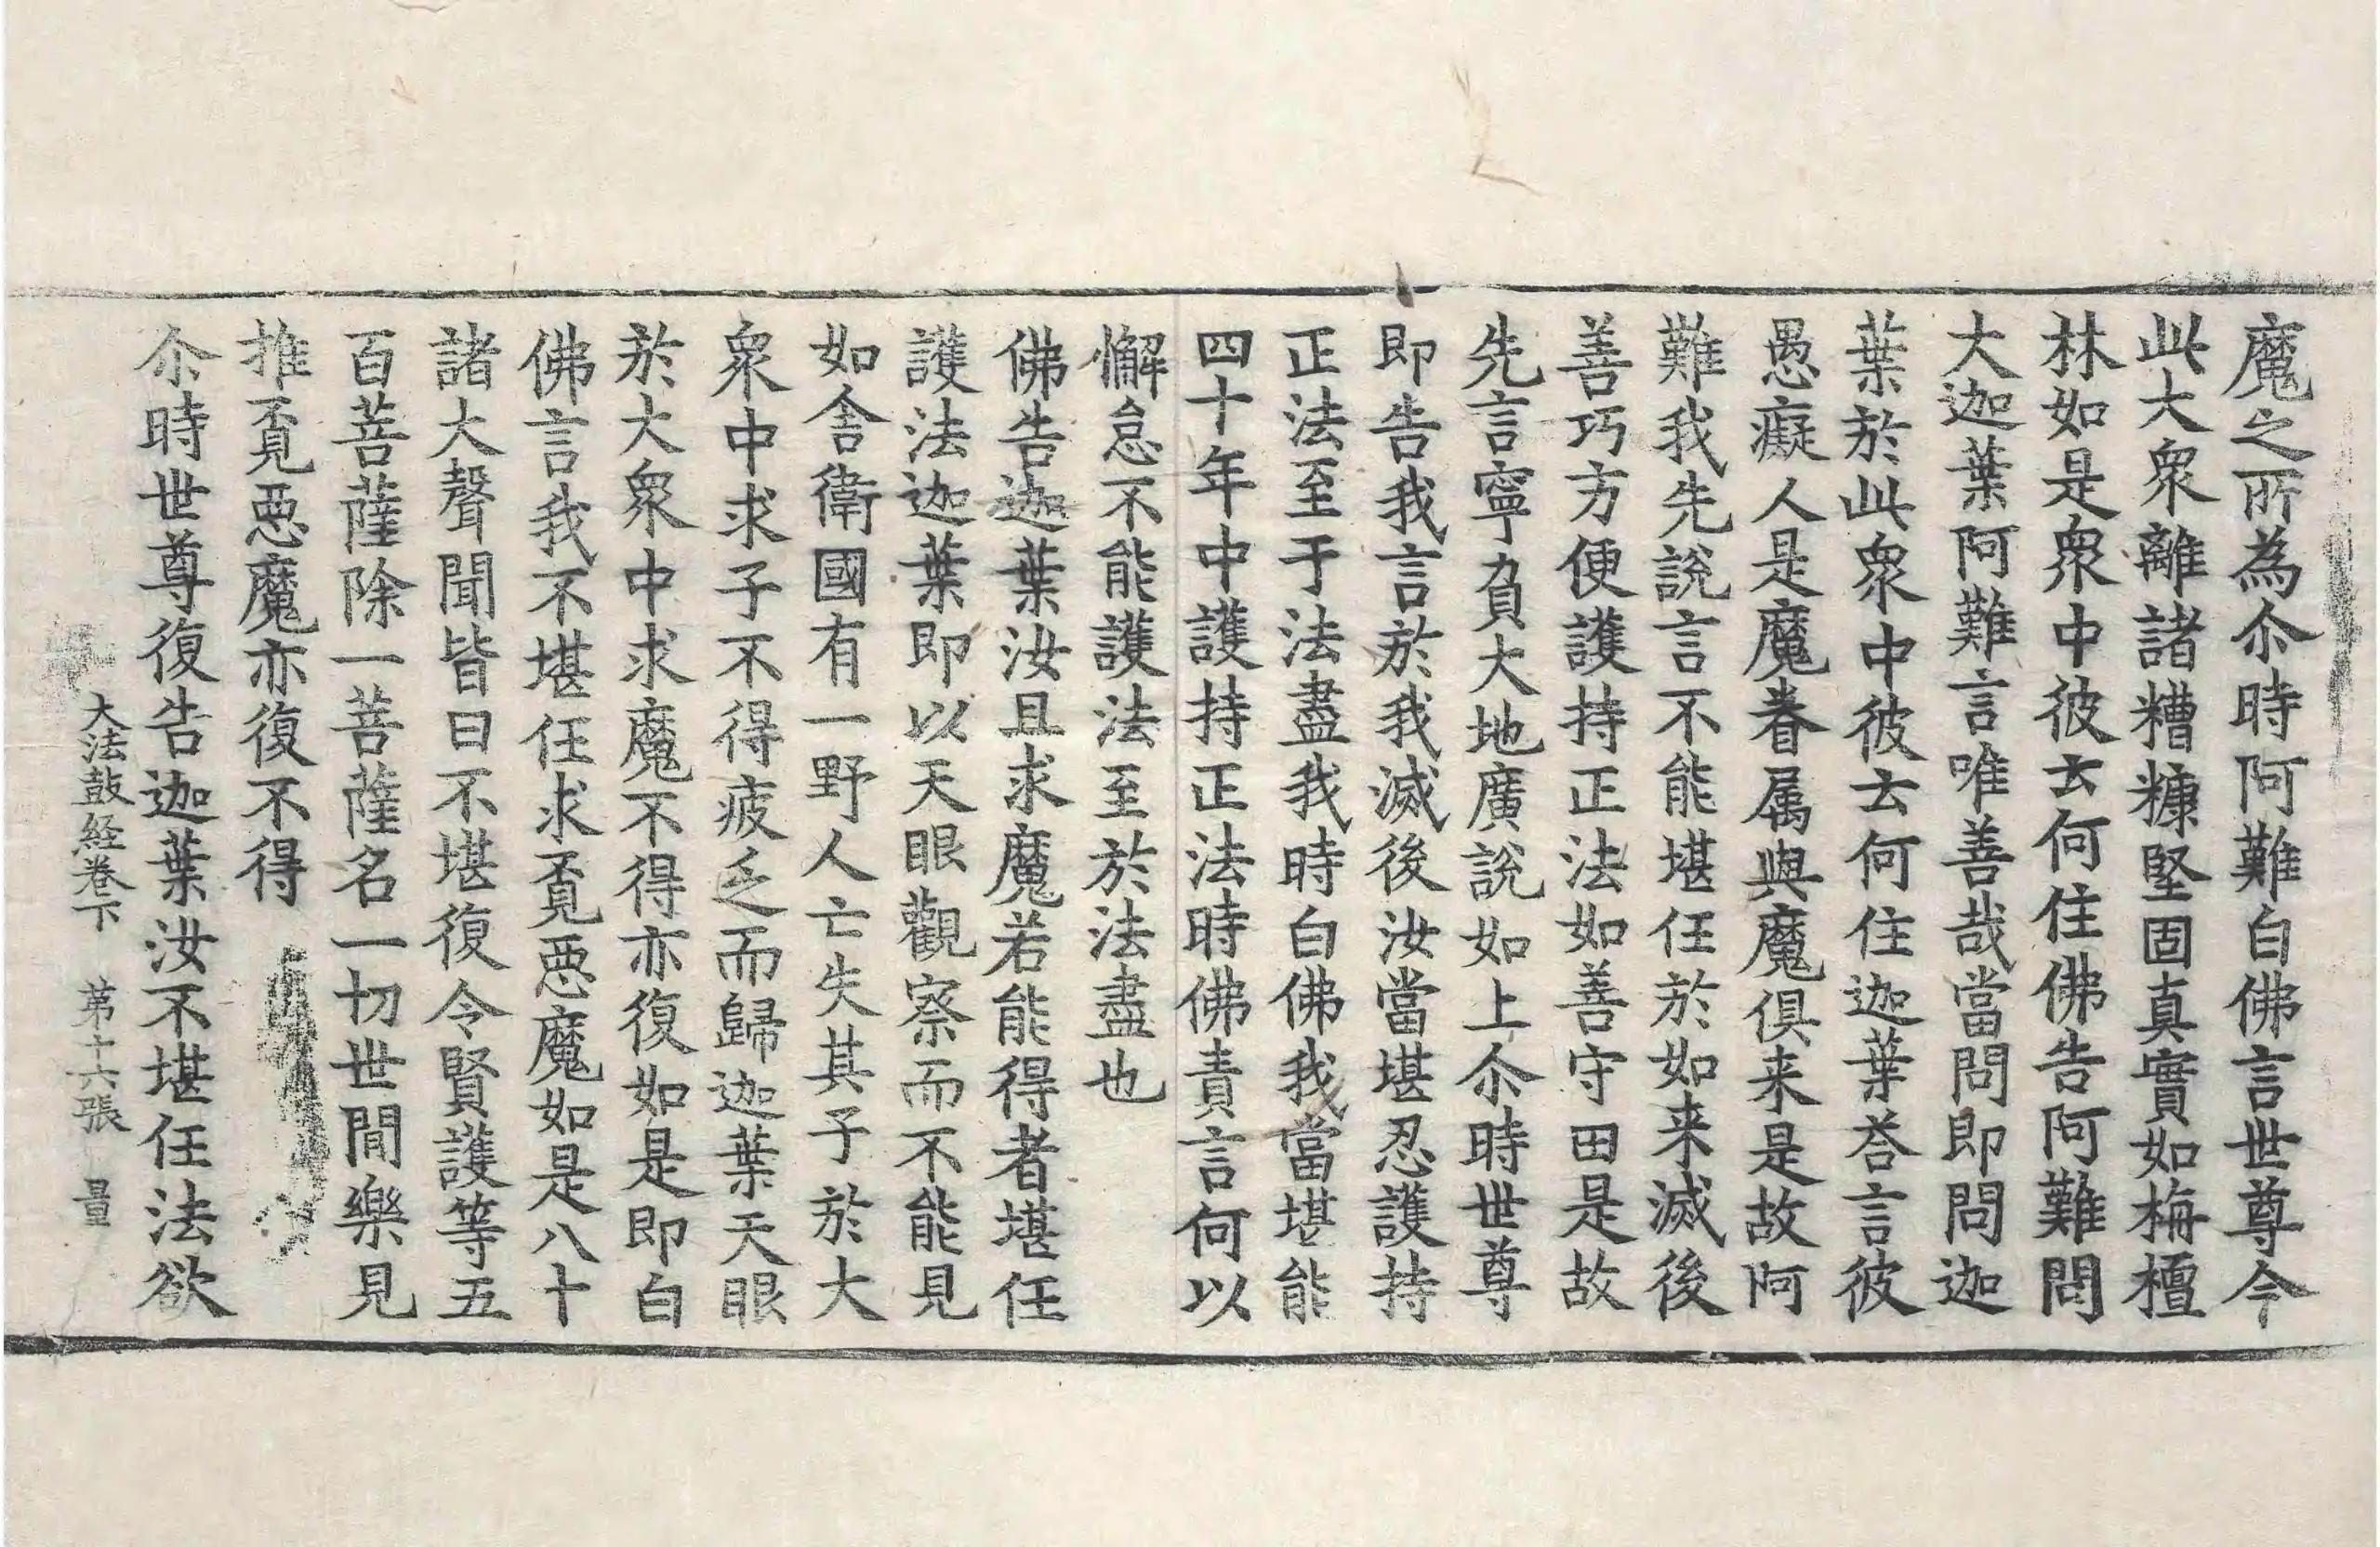 魔之所為尒時阿難白佛言世尊今
此大衆離諸糟糠堅固真實如栴檀
林如是衆中彼去何住佛告阿難問
大迦葉阿難言唯善哉當問即問迦
葉於此衆中彼去何住迦葉荅言彼
愚癡人是魔眷属與魔俱来是故阿
難我先說言不能堪任於如来滅後
善巧方便護持正法如善守田是故
先言寧負大地廣說如上尒時世尊
即告我言於我滅後汝當堪忍護持
正法至于法盡我時白佛我當堪能
四十年中護持正法時佛責言何以
懈怠不能護法至於法盡也
佛告迦葉汝且求魔若能得者堪任
護法迦葉即以天眼觀察而不能見
如舍衛國有一野人亡失其子於大
衆中求子不得疲乏而歸迦葉天眼
於大衆中求魔不得亦復如是即白
佛言我不堪任求覓惡魔如是八十
諸大聲聞皆曰不堪復令賢護等五
百菩薩除一菩薩名一切世間樂見
推覓惡魔亦復不得
尒時世尊復告迦葉汝不堪任法欲
大法鼓経卷下 第十六張 量